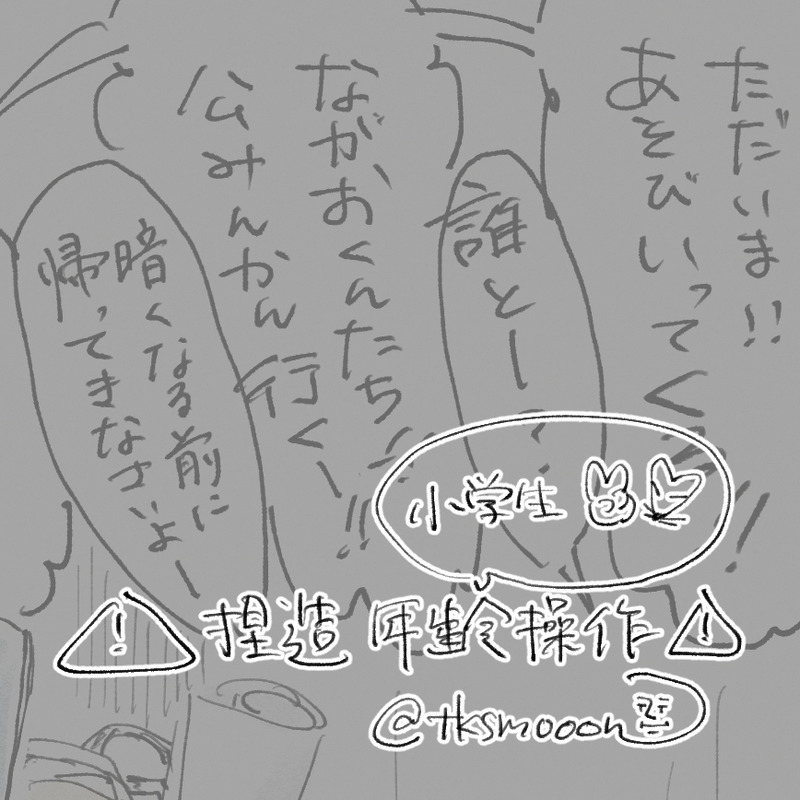 ただいま!!
あそびいってくる!!
誰とー?
ながおくんたち!!
公みんかん行くー!!
暗くなる前に
帰ってきなさいよー
小学生
!捏造 年齢操作!
@tksmooon